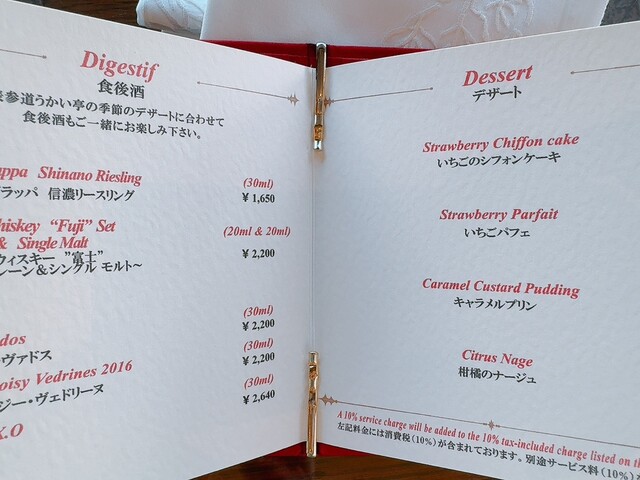 Digestif
食後酒
参道うかい亭の季節のデザートに合わせて
食後酒もご一緒にお楽しみ下さい。
Shinano Riesling
(30ml)
ラッパ 信濃リースリング
¥ 1,650
"Fuji" Set
& Single Malt
(20ml & 20ml)
ウィスキー "富士"
¥ 2,200
レーン＆シングル モルト～
(30ml)
¥ 2,200
(30ml)
ヴァドス
¥ 2,200
Vedrines 2016
(30ml)
ジー・ヴェドリーヌ
¥ 2,640
X.O
Dessert
デザート
Strawberry Chiffon cake
いちごのシフォンケーキ
Strawberry Parfait
いちごパフェ
Caramel Custard Pudding
キャラメルプリン
Citrus Nage
柑橘のナージュ
A 10% service charge will be added to the 10% tax-included charge listed on
左記料金には消費税(10%)が含まれております。別途サービス料(10%)